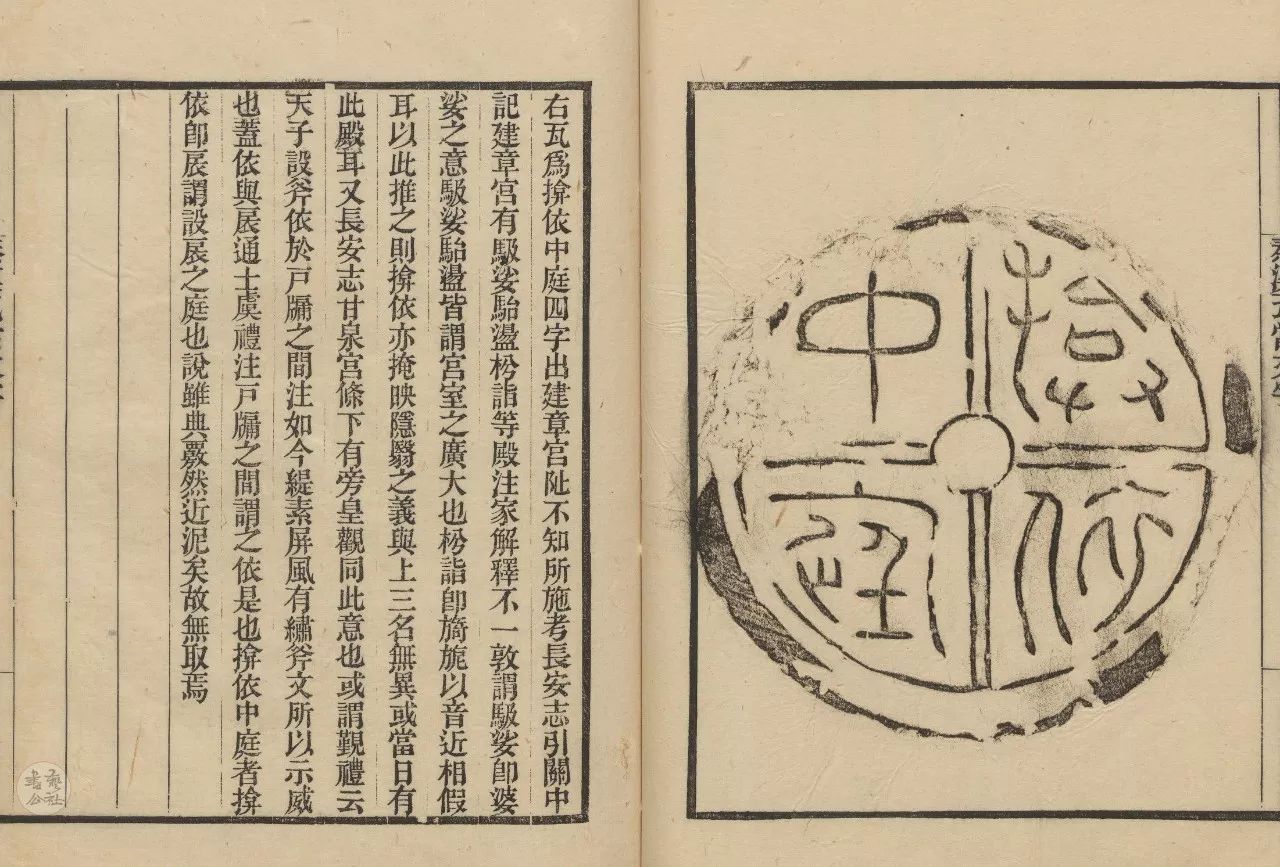 揜依
中庭
右瓦爲揜依中庭四字出建章宮阯不知所施考長安志引關中
記建章宮有馺娑駘盪枍詣等殿注家解釋不一敦謂馺娑卽婆
娑之意馺娑駘盪皆謂宮室之廣大也枍詣卽旖旎以音近相假
耳以此推之則揜依亦掩映隱翳之義與上三名無異或當日有
此殿耳又長安志甘泉宮條下有旁皇觀同此意也或謂覲禮云
天子設斧依於戸牖之間注如今緹素屏風有繡斧文所以示威
也蓋依與扆通士虞禮注戸牖之間謂之依是也揜依中庭者揜
依卽扆謂設扆之庭也說雖典覈然近泥矣故無取焉
書藝公社